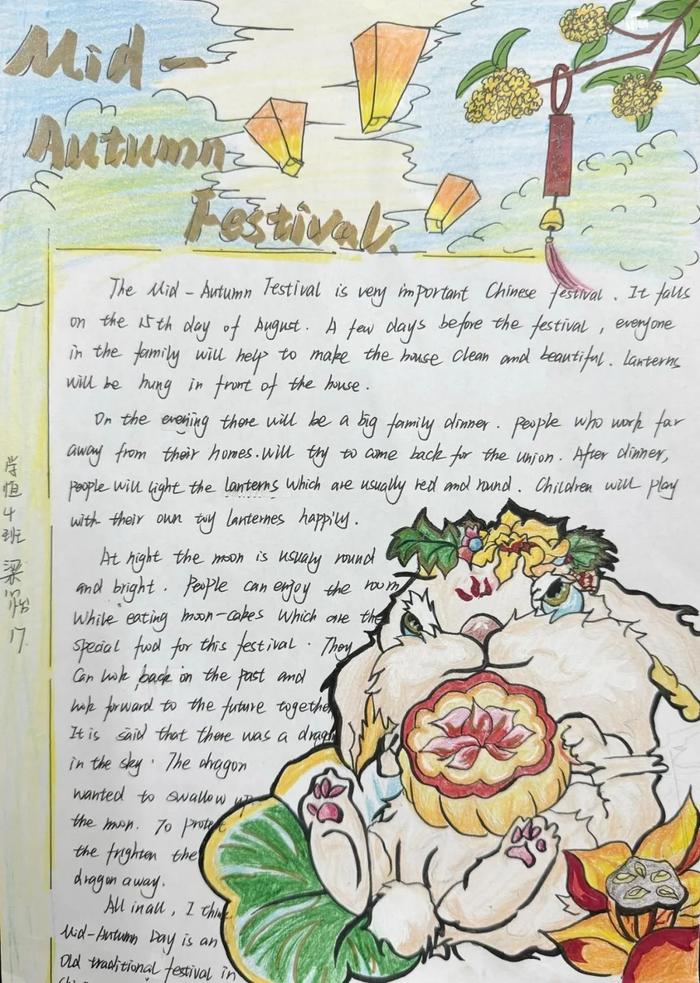 Mid-
Autumn
Festival.
The Mid-Autumn Festival is very important Chinese festival. It falls
on the 15th day of August. A few days before the festival, everyone
in the family will help to make the house clean and beautiful. Lanterns
will be hung in front of the house.
On the evening there will be a big family dinner. People who work far
away from their homes. will try to come back for the union. After dinner,
people will light the lanterns which are usually red and round. Children will play
with their own toy lanternes happily.
At night the moon is usualy round
and bright. People can enjoy the room
while eating moon-cakes which are the
special food for this festival. They
can look back on the past and
look forward to the future together
It is said that there was a dragon
in the sky. The dragon
wanted to swallow up
the moon. To protect
the frighten the
dragon away.
All in all, I think
Mid-Autumn Day is an
old traditional festival in
4班
17